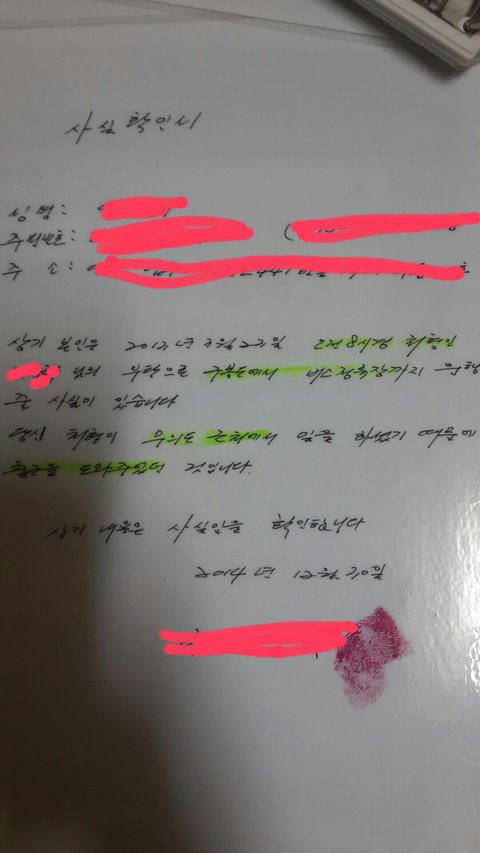 사실확인서
성명:
주민번호:
주 소:
상기 본인은 2013년 3월 23일 오전8시경 처형인
님의 부탁으로 구봉도에서 버스정류장까지 운행
준 사실이 있습니다
당시 처형이 무의도 근처에서 일을 하셨기 때문에
출근을 도와주었던 것입니다.
상기 내용은 사실임을 확인합니다
2014년 12월 30일